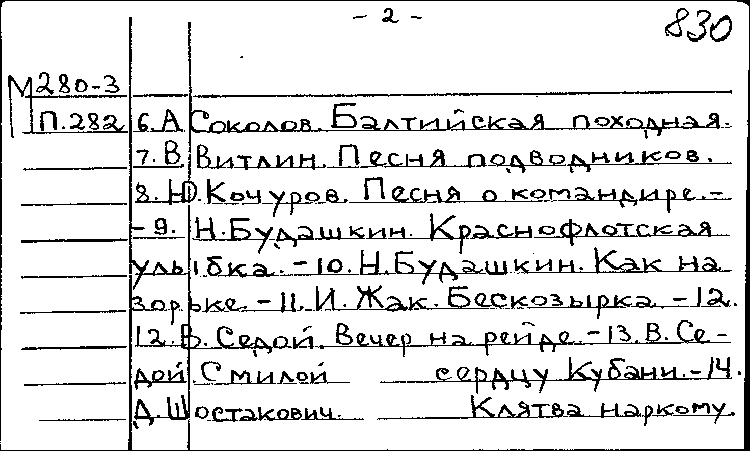 - 2 -
830
М280-3
П.282 6.А.Соколов. Балтийская походная.
7.В.Витлин. Песня подводников.
8.Ю.Кочуров. Песня о командире.-
-9. Н.Будашкин. Краснофлотская
улыбка.-10.Н.Будашкин. Как на
зорьке.-11.И.Жак. Бескозырка.-12.
12.В.Седой. Вечер на рейде.-13.В.Се-
дой.С милой сердцу Кубани.-14.
Д.Шостакович. Клятва наркому.